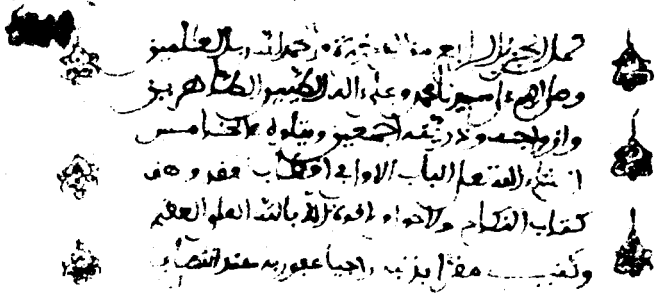 كمل الجزء الرابع من الذخيرة والحمد لله رب العلمين
وصلى الله على سيدنا محمد وعلى اله الطيبين الطاهرين
وازواجه وذريته اجمعين ويتلوه في الخامس
ان شاء الله تعلى الباب الاول في
كتاب النكاح ولا حول ولا قوة الا بالله العلي العظيم
وكتب مقرا بذنبه راجيا عفو ربه عند